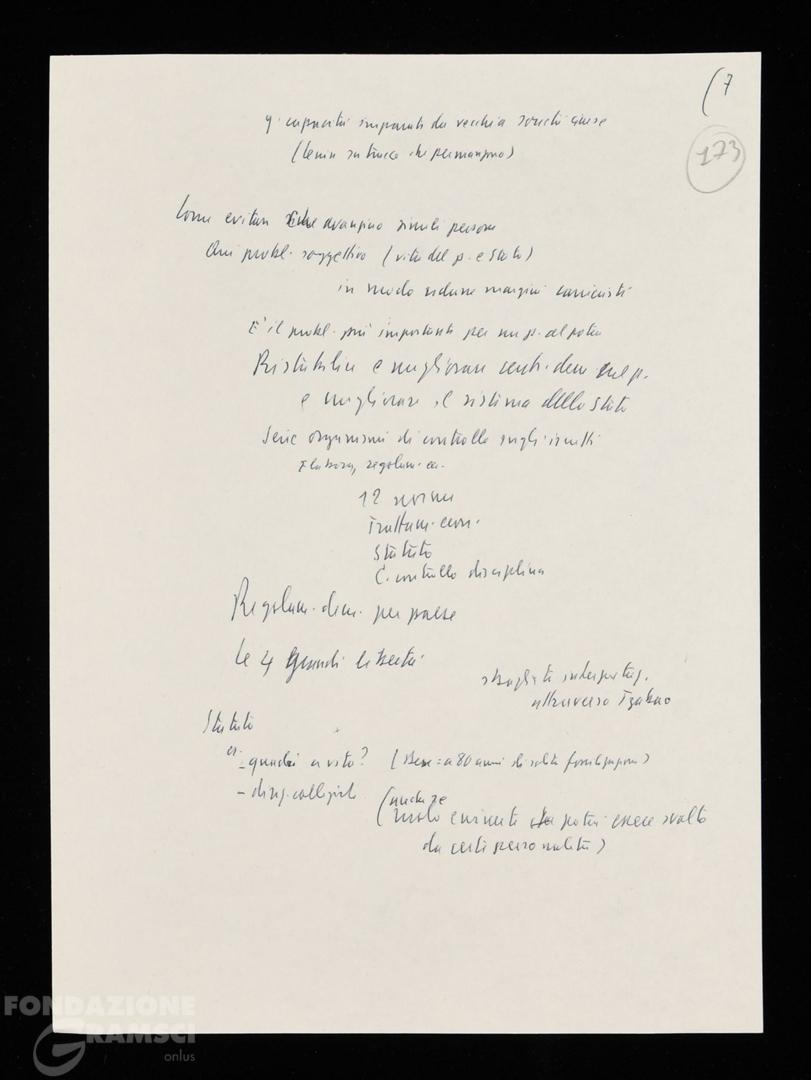 (7
173
capacità imparata da vecchia società cinese
(Lenin su tracce che permangono)
Come evitare che avanzino simili persone
Qui probl. soggettivo (vita del p. e Stato)
in modo ridurre margini carrieristi
E' il probl. più importante per un p. al potere
Ristabilire e migliorare centr. dem. nel p.
e migliorare il sistema dello Stato
Serie organismi di controllo sugli iscritti
Elaboraz. regolam.
12 norme
Trattam.
Statuto
C. controllo disciplina
Regolam. dem. per paese
Le 4 grandi libertà
sbagliata interpretaz.
attraverso
Statuto
es.
- quadri a vita? ( a 80 anni di solito )
- direz. collegiale (anche se
ruolo eminente potrà essere svolto
da certe personalità)
FONDAZIONE
GRAMSCI
onlus